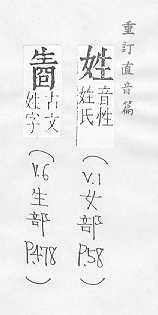 重訂直音篇
姓
音性
姓氏
(V.1女部P.58)
古文
姓字
(V.6生部P.478)